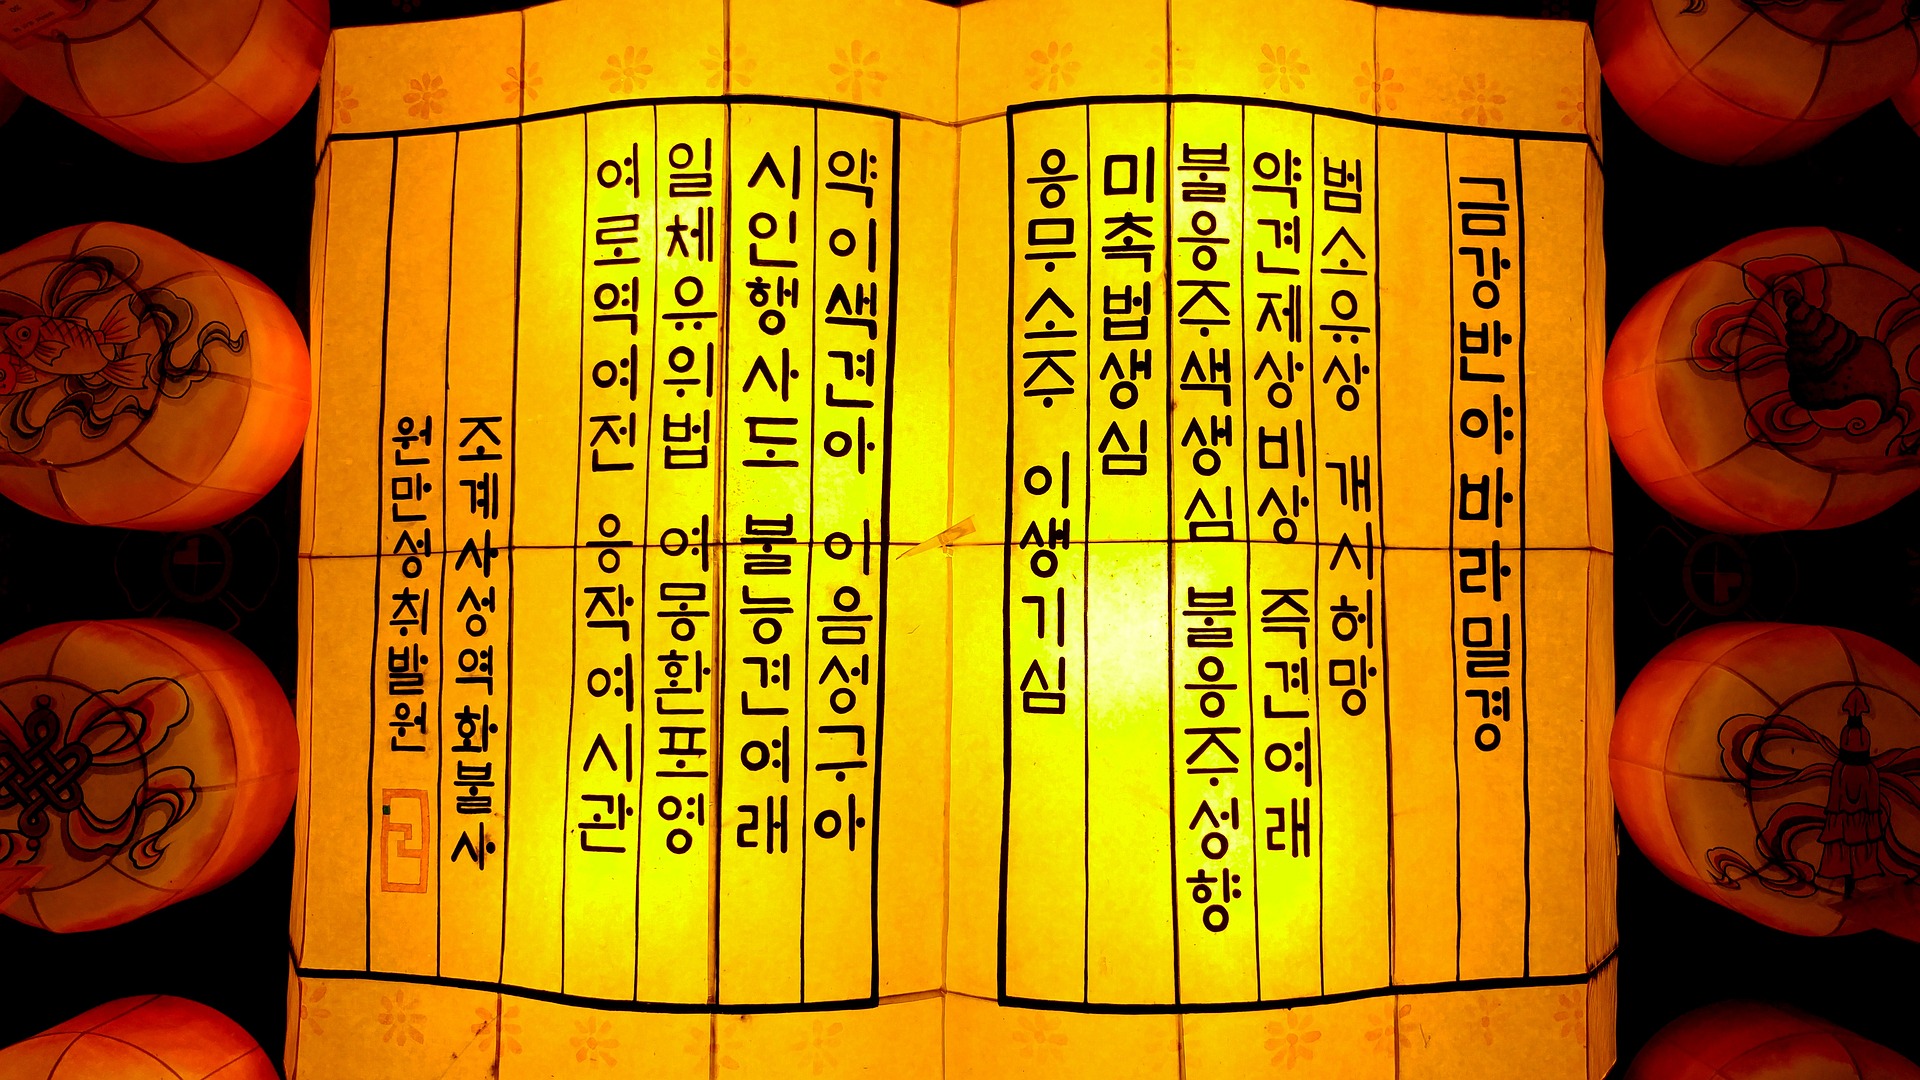 금강반야바라밀경
범소유상 개시허망
약견제상비상 즉견여래
불응주색생심 불응주성향
미촉법생심
응무소주 이생기심
약이색견아 이음성구아
시인행사도 불능견여래
일체유위법 여몽환포영
여로역여전 응작여시관
조계사성역화불사
원만성취발원